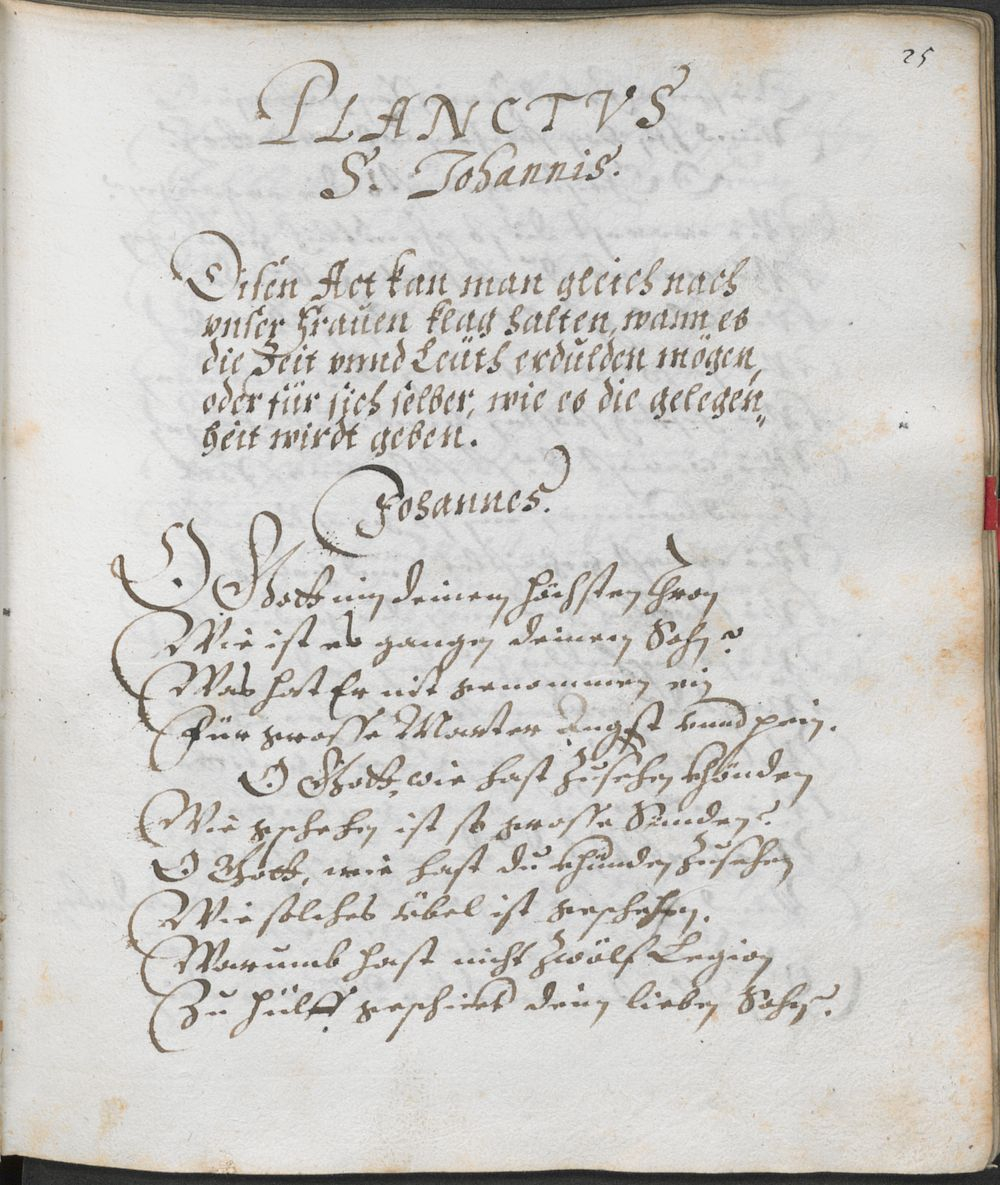 25
PLANCTVS
S. Johannis.
Disen Act kan man gleich nach
vnser Frauen klag halten, wann es
die Zeit vnnd Leüth erdulden mögen,
oder für sich selber, wie es die gelegen„
heit wirdt geben.
Johannes.
O Gott inn deinem höchsten Thron
Wie ist es gangen deinem Sohn?
Was hat Er nit genommen ein
Für grosse Marter Angst vnnd pein.
O Gott, wie hast Zusehen khönden
Wie gschehen ist so grosse Sünden?
O Gott, wie hast du khünden Zusehen
Wie solches übel ist geschehen.
Warumb hast nicht Zwölf Legion
Zu hülff geschickt dein lieben Sohn?